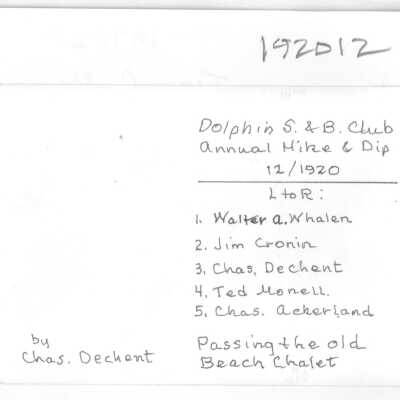 192012
Dolphin S. & B. Club
Annual Hike & Dip
12/1920
L to R:
1. Walter A. Whalen
2. Jim Cronin
3. Chas. Dechent
4. Ted Monell.
5. Chas. Ackerland
Passing the old
Beach Chalet
by
Chas. Dechent